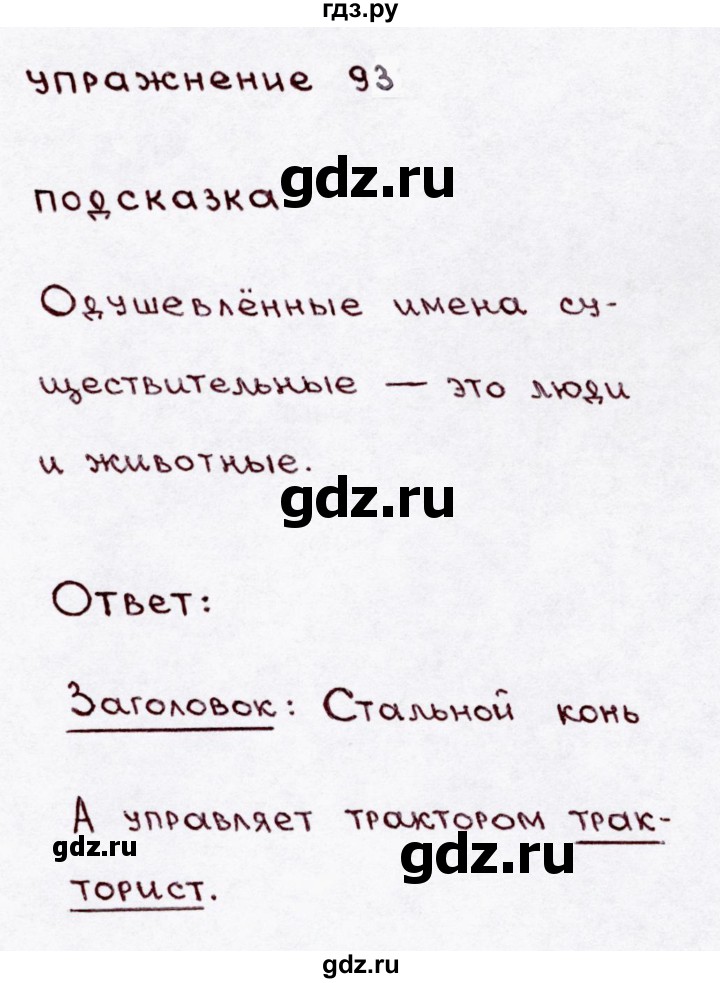 гдз.ру
упражнение 93
подсказка
gdz.ru
Одушевлённые имена су-
ществительные — это люди
и животные.
gdz.ru
Ответ:
Заголовок: Стальной конь
А управляет трактором трак-
gdz.ru
gdz.ru
торист.
gdz.ru